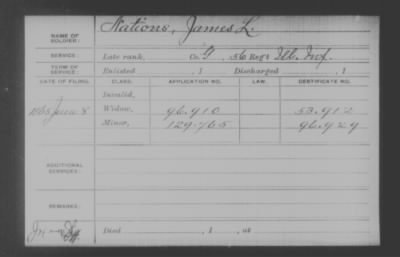 NAME OF SOLDIER: Nations, James L.
SERVICE: Late rank, Co. G, 56 Regt Ill. Inf.
TERM OF SERVICE: Enlisted , 1 Discharged , 1
DATE OF FILING. CLASS. APPLICATION NO. LAW. CERTIFICATE NO.
Invalid,
1865 June 8 Widow, 96.910 53.912
Minor, 129.765 96.929
ADDITIONAL SERVICES:
REMARKS:
Died , 1 , at